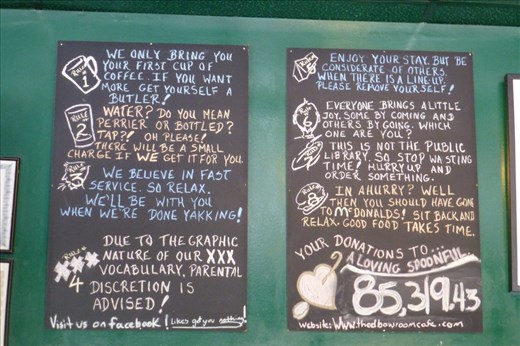 RULE # 1
WE ONLY BRING YOU
YOUR FIRST CUP OF
COFFEE. IF YOU WANT
MORE GET YOURSELF A
BUTLER!
RULE 2
WATER? DO YOU MEAN
PERRIER OR BOTTLED?
TAP?! OH PLEASE!
THERE WILL BE A SMALL
CHARGE IF WE GET IT FOR YOU
3
WE BELIEVE IN FAST
SERVICE. SO RELAX.
WE'LL BE WITH YOU
WHEN WE'RE DONE YAKKING!
RULE 4
DUE TO THE GRAPHIC
NATURE OF OUR XXX
VOCABULARY, PARENTAL
DISCRETION IS
ADVISED!
Visit us on facebook! Likes get you nothing!
ENJOY YOUR STAY. BUT BE
CONSIDERATE OF OTHERS.
WHEN THERE IS A LINE-UP.
PLEASE REMOVE YOURSELF!
EVERYONE BRINGS A LITTLE
JOY. SOME BY COMING AND
OTHERS BY GOING. WHICH
ONE ARE YOU?
THIS IS NOT THE PUBLIC
LIBRARY. SO STOP WASTING
TIME! HURRY UP AND
ORDER SOMETHING.
RULE 8
IN A HURRY? WELL
THEN YOU SHOULD HAVE GONE
TO McDONALDS! SIT BACK AND
RELAX. GOOD FOOD TAKES TIME.
YOUR DONATIONS TO...
A LOVING SPOONFUL
85,319.43
website: www.theelbowroomcafe.com